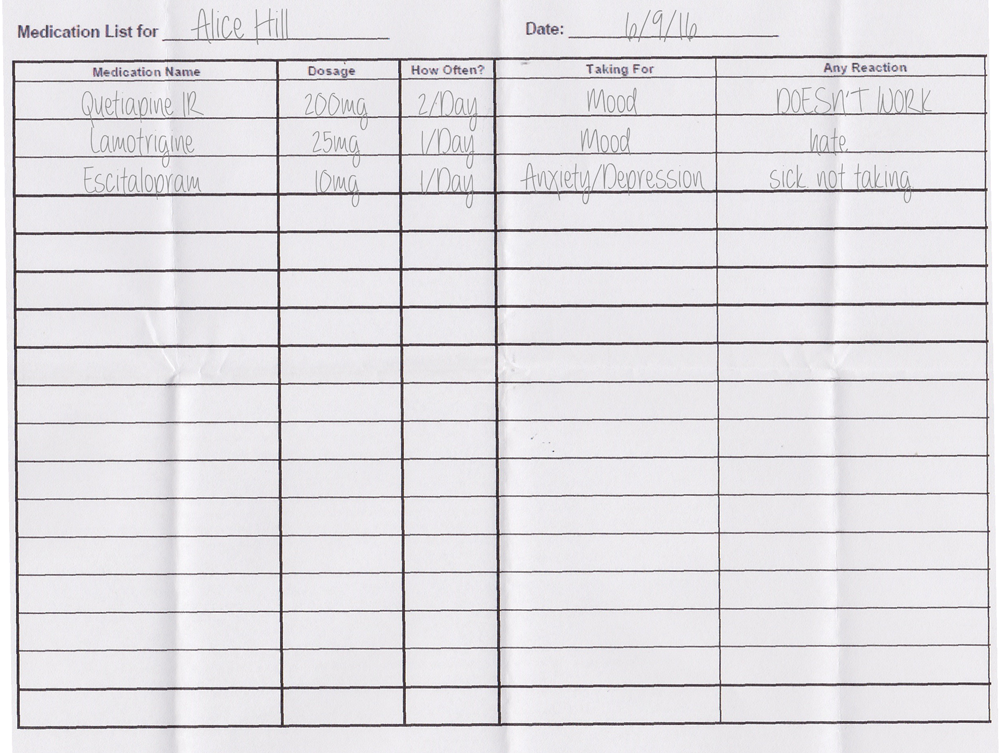 Medication List for Alice Hill Date: 6/9/16
Medication Name Dosage How Often? Taking For Any Reaction
Quetiapine IR 200mg 2/Day Mood DOESN'T WORK
Lamotrigine 25mg 1/Day Mood hate
Escitalopram 10mg 1/Day Anxiety/Depression sick not taking